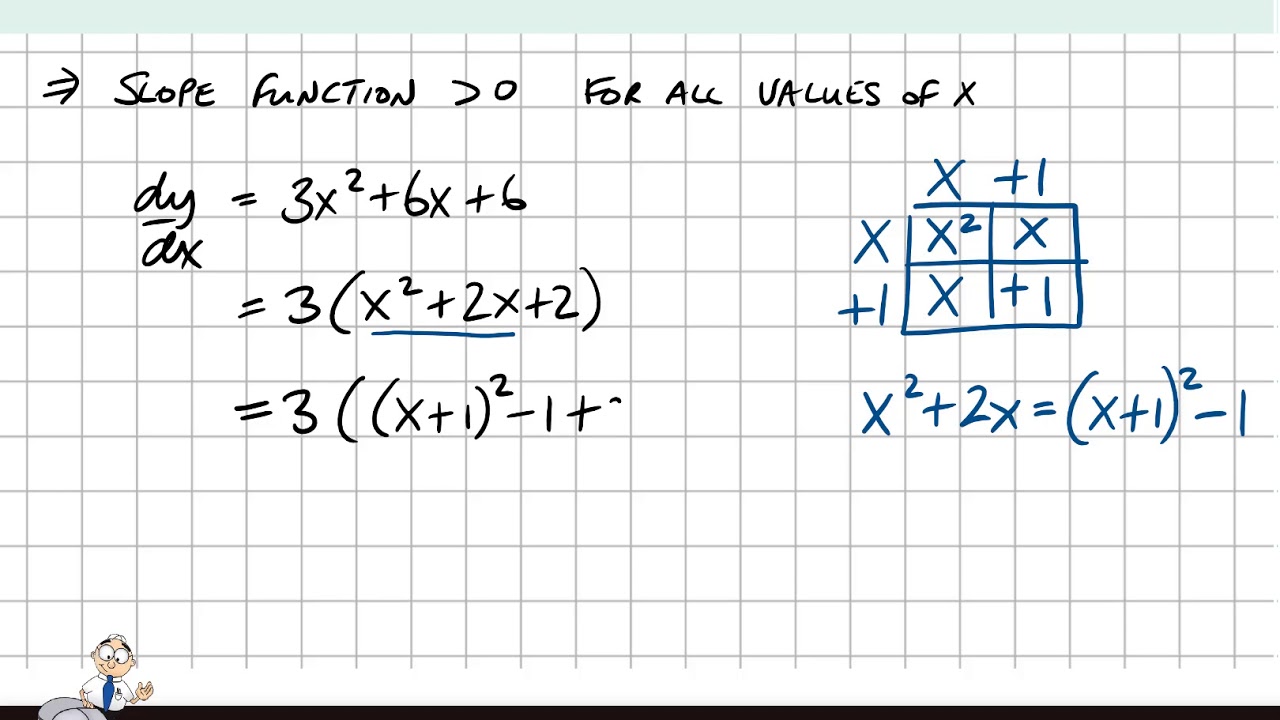 ⇒ SLOPE FUNCTION > 0 FOR ALL VALUES OF X
dy/dx = 3x² + 6x + 6
= 3(x² + 2x + 2)
= 3((x+1)² - 1 +
x +1
x x² x
+1 x +1
x² + 2x = (x+1)² - 1